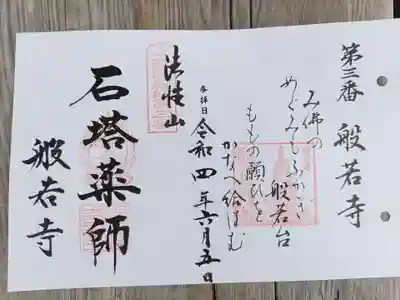 第三番 般若寺
み佛の
めぐみもふかき
般若台
ももの願ひを
かなへ給はむ
参拝日 令和四年六月五日
法性山
石塔薬師
般若寺